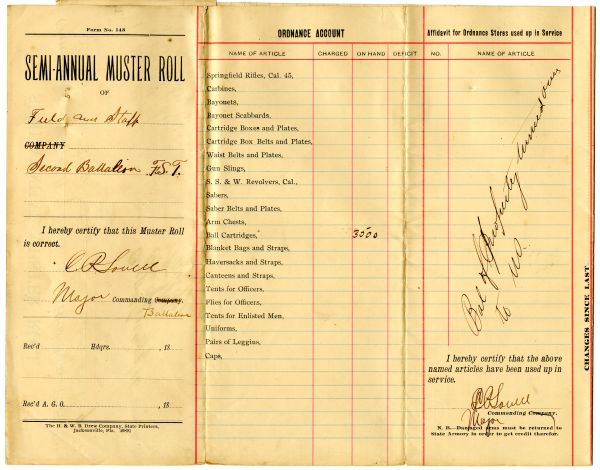 Form No. 148
SEMI-ANNUAL MUSTER ROLL
OF
Field and Staff
COMPANY
Second Battalion F.S.T.
I hereby certify that this Muster Roll
is correct.
C R Lovell
Major Commanding Company.
Battalion
Rec'd Hdqrs. , 18
Rec'd A. G. O. , 18
The H. & W. B. Drew Company, State Printers,
Jacksonville, Fla.
ORDNANCE ACCOUNT
NAME OF ARTICLE CHARGED ON HAND DEFICIT
Springfield Rifles, Cal. 45,
Carbines,
Bayonets,
Bayonet Scabbards,
Cartridge Boxes and Plates,
Cartridge Box Belts and Plates,
Waist Belts and Plates,
Gun Slings,
S. S. & W. Revolvers, Cal.,
Sabers,
Saber Belts and Plates,
Arm Chests,
Ball Cartridges, 3000
Blanket Bags and Straps,
Haversacks and Straps,
Canteens and Straps,
Tents for Officers,
Flies for Officers,
Tents for Enlisted Men,
Uniforms,
Pairs of Leggins,
Caps,
Affidavit for Ordnance Stores used up in Service
NO. NAME OF ARTICLE
Bal of property
to
I hereby certify that the above
named articles have been used up in
service.
C R Lovell
Commanding Company.
Major
N. B.—Damaged arms must be returned to
State Armory in order to get credit therefor.
CHANGES SINCE LAST